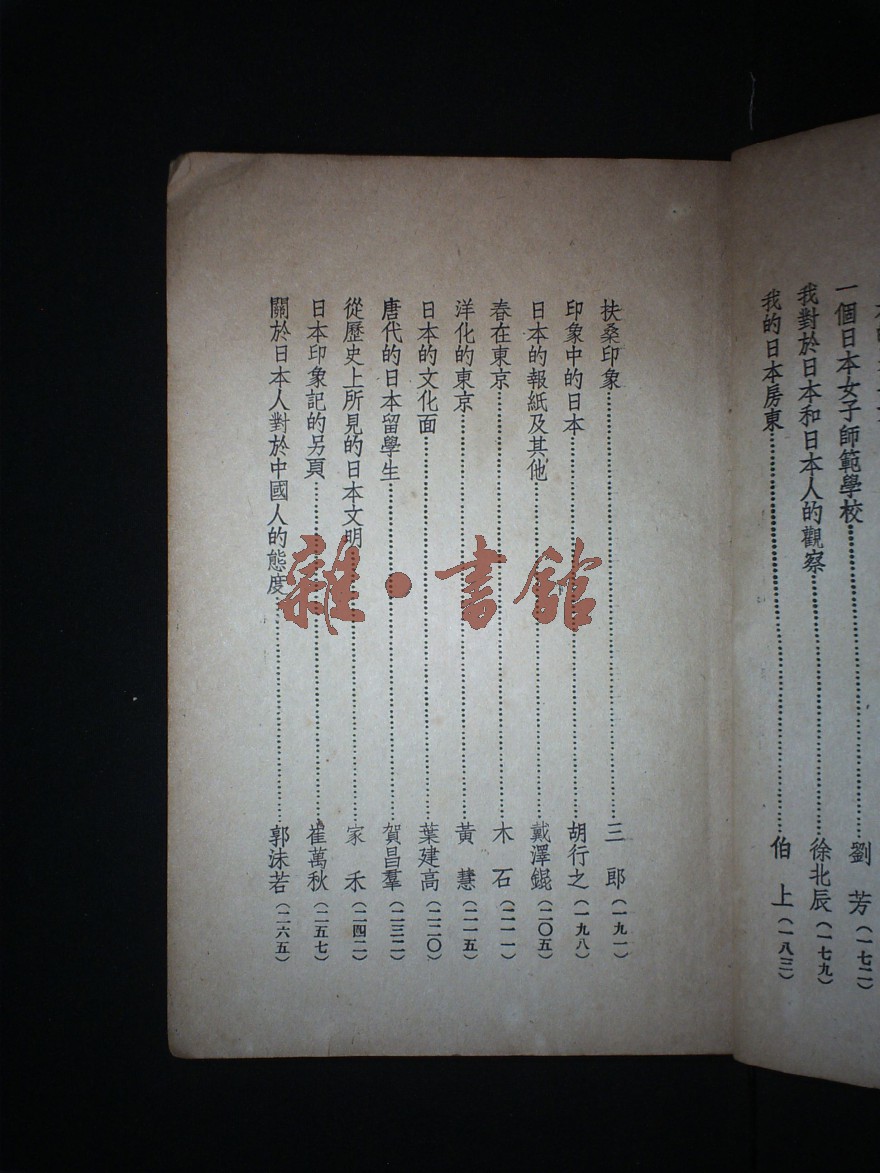 一個日本女子師範學校……劉芳(一七二)
我對於日本和日本人的觀察……徐北辰(一七九)
我的日本房東……伯上(一八三)
扶桑印象……三郎(一九一)
印象中的日本……胡行之(一九八)
日本的報紙及其他……戴澤錕(二〇五)
春在東京……木石(二一一)
洋化的東京……黃慧(二一五)
日本的文化面……葉建高(二二〇)
唐代的日本留學生……賀昌羣(二三二)
從歷史上所見的日本文明……家禾(二四二)
日本印象記的另頁……崔萬秋(二五七)
關於日本人對於中國人的態度……郭沫若(二六五)
雜·書館